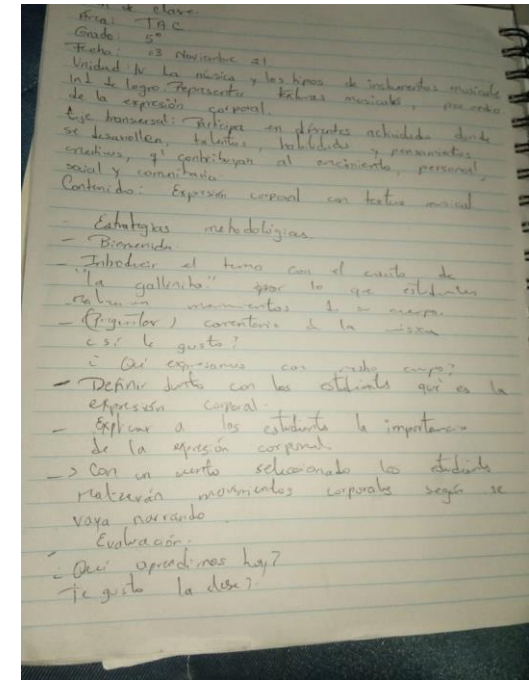 de clase.
Área: TAC
Grado: 5°
Fecha: 3 Noviembre 21
Unidad: IV La música y los tipos de instrumentos musicales
Ind de logro: Representa texturas musicales, por medio
de la expresión corporal.
Eje transversal: Participa en diferentes actividades donde
se desarrollen, talentos, habilidades y pensamientos
creativos, q' contribuyan al crecimiento, personal,
social y comunitario
Contenido: Expresión corporal con textura musical
Estrategias metodológicas
- Bienvenida
- Introducir el tema con el cuento de
"la gallinita" por lo que estudiantes
realizan movimientos de su cuerpo.
- comentario de la misma
¿si le gusto?
¿Qué expresamos con cuerpo?
- Definir junto con los estudiantes qué es la
expresión corporal.
- Explicar a los estudiantes la importancia
de la expresión corporal
-> Con un cuento seleccionado los estudiantes
realizarán movimientos corporales según se
vaya narrando.
Evaluación.
¿Qué aprendimos hoy?
Te gusto la clase?